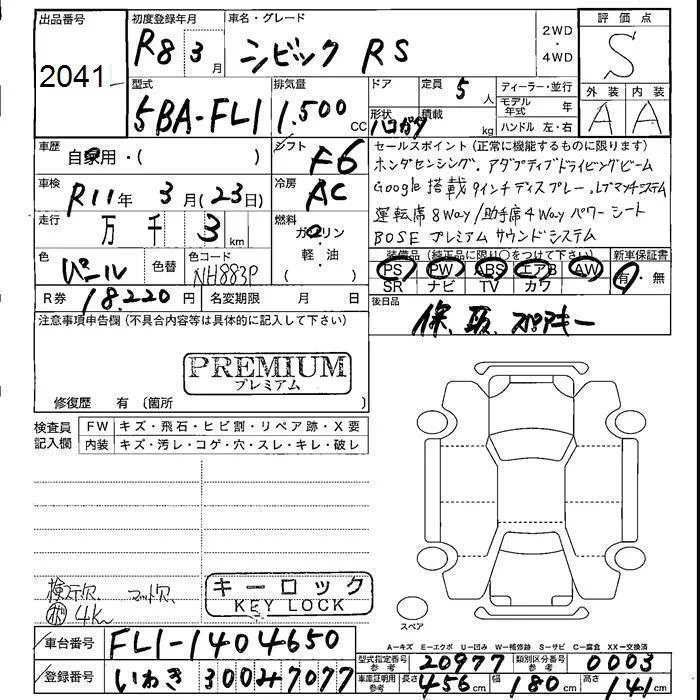 出品番号 初度登録年月 車名・グレード 2WD・4WD 評価点
2041 R8 3月 シビック RS S
型式 排気量 ドア 定員 5人 ディーラー・並行 外装 内装
5BA-FL1 1.500cc 形状 ハコガタ 積載 kg モデル年式 年 A A
ハンドル 左・右
車歴 自家用・( ) シフト F6 セールスポイント(正常に機能するものに限ります)
車検 R11年 3月(23日) 冷房 AC ホンダセンシング.アダプティブドライビングビーム
Google搭載9インチディスプレー.レブマッチシステム
走行 万 千 3km 燃料 ガソリン・軽・油 運転席8Way/助手席4Wayパワーシート
BOSE プレミアムサウンドシステム
色 パール 色替 色コード NH883P 装備品(純正品に限り○をつけて下さい) 新車保証書
PS PW ABS エアB AW 有・無
SR ナビ TV カワ
R券 18.220円 名変期限 月 日 後日品
保、取、スペアキー
注意事項申告欄(不具合内容等は具体的に記入して下さい)
PREMIUM
プレミアム
修復歴 有(箇所 )
検査員記入欄 FW キズ・飛石・ヒビ割・リペア跡・X要
内装 キズ・汚レ・コゲ・穴・スレ・キレ・破レ
4K
キーロック
KEY LOCK
スペア
A=キズ E=エクボ U=凹み W=補修跡 S=サビ C=腐食 XX=交換済
車台番号 FL1-1404650
型式指定番号 参考 20977 類別区分番号 参考 0003
登録番号 いわき 300 7077
車庫証明用 参考 長さ 456cm 幅 180cm 高さ 141cm